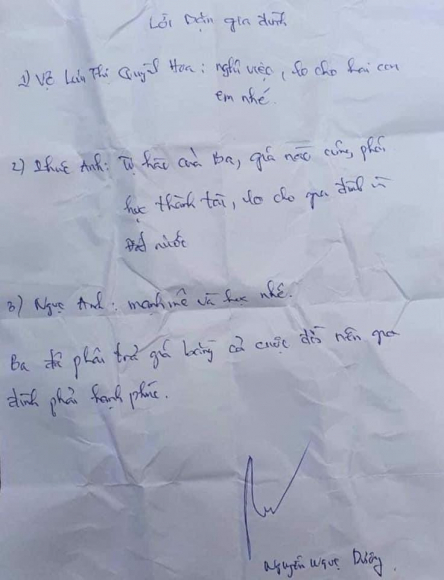 Lời Dặn gia đình
1) Vợ Lưu Thị Quỳnh Hoa: nghỉ việc, lo cho hai con
em nhé.
2) Phúc Anh: Tự hào của Ba, giá nào cũng phải
học thành tài, lo cho gia đình và
đất nước
3) Ngọc Anh: mạnh mẽ và học nhé.
Ba đã phải trả giá bằng cả cuộc đời nên gia
đình phải hạnh phúc.
Nguyễn Ngọc Dương